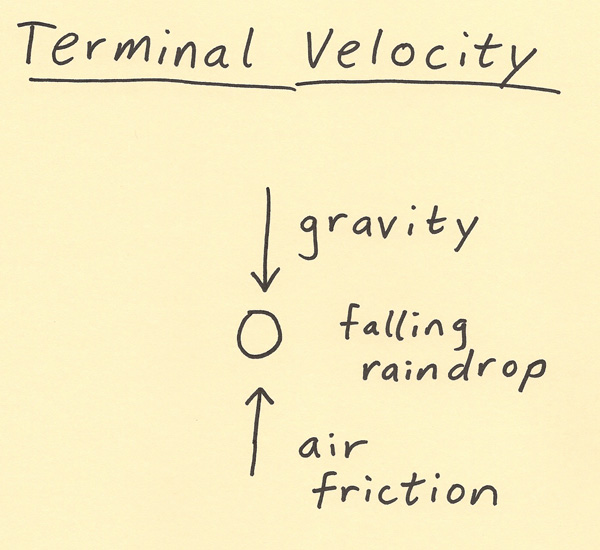 Terminal Velocity
gravity
falling
raindrop
air
friction